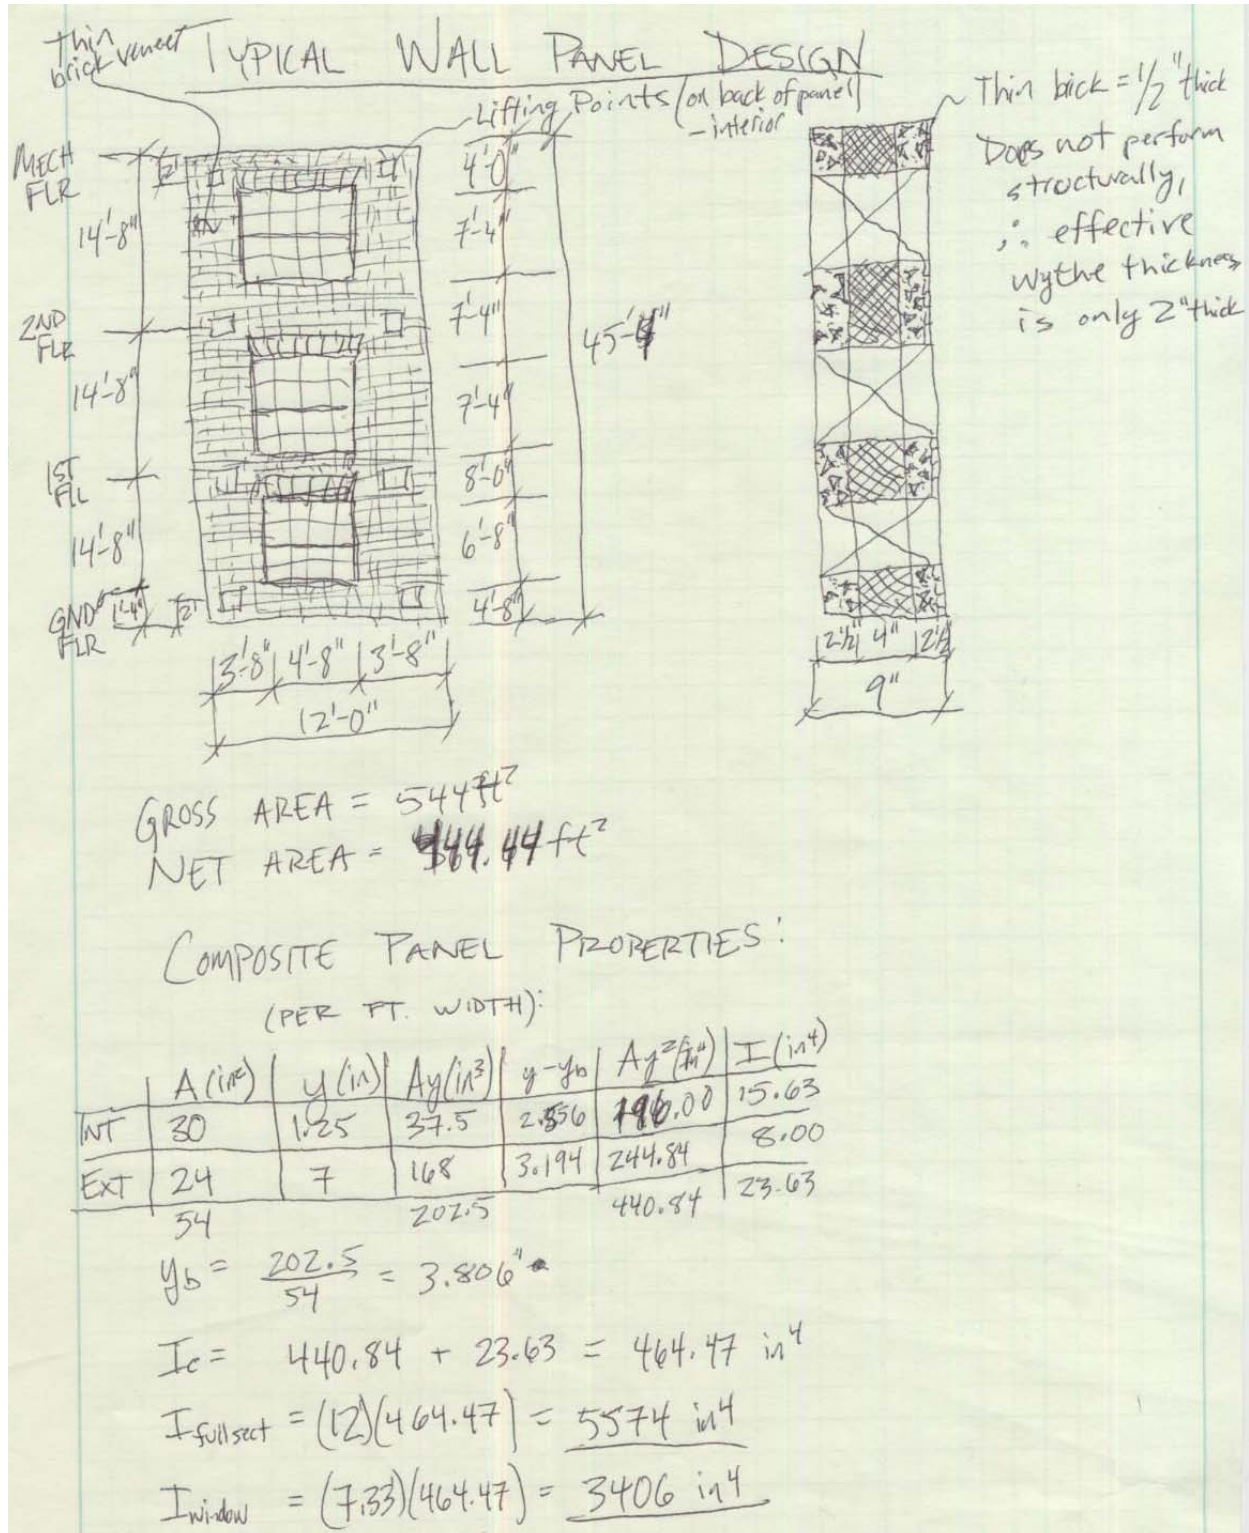 Thin
brick veneer
TYPICAL WALL PANEL DESIGN
Lifting Points (on back of panel)
- interior
MECH
FLR
2'
14'-8"
2ND
FLR
14'-8"
1ST
FLL
14'-8"
GND
FLR
1'-4"
2'
4'-0"
7'-4"
7'-4"
7'-4"
8'-0"
6'-8"
4'-8"
45'-4"
3'-8" 4'-8" 3'-8"
12'-0"
Thin bick = 1/2" thick
Does not perform
structurally,
∴ effective
wythe thickness
is only 2" thick
2½" 4" 2½
9"
GROSS AREA = 544 ft²
NET AREA = 444.44 ft²
COMPOSITE PANEL PROPERTIES:
(PER FT. WIDTH):
A (in²) y (in) Ay (in³) y-yb Ay² (in⁴) I (in⁴)
INT 30 1.25 37.5 2.556 196.00 15.63
EXT 24 7 168 3.194 244.84 8.00
54 202.5 440.84 23.63
yb = 202.5/54 = 3.806"
Ic = 440.84 + 23.63 = 464.47 in⁴
I full sect = (12)(464.47) = 5574 in⁴
I window = (7.33)(464.47) = 3406 in⁴